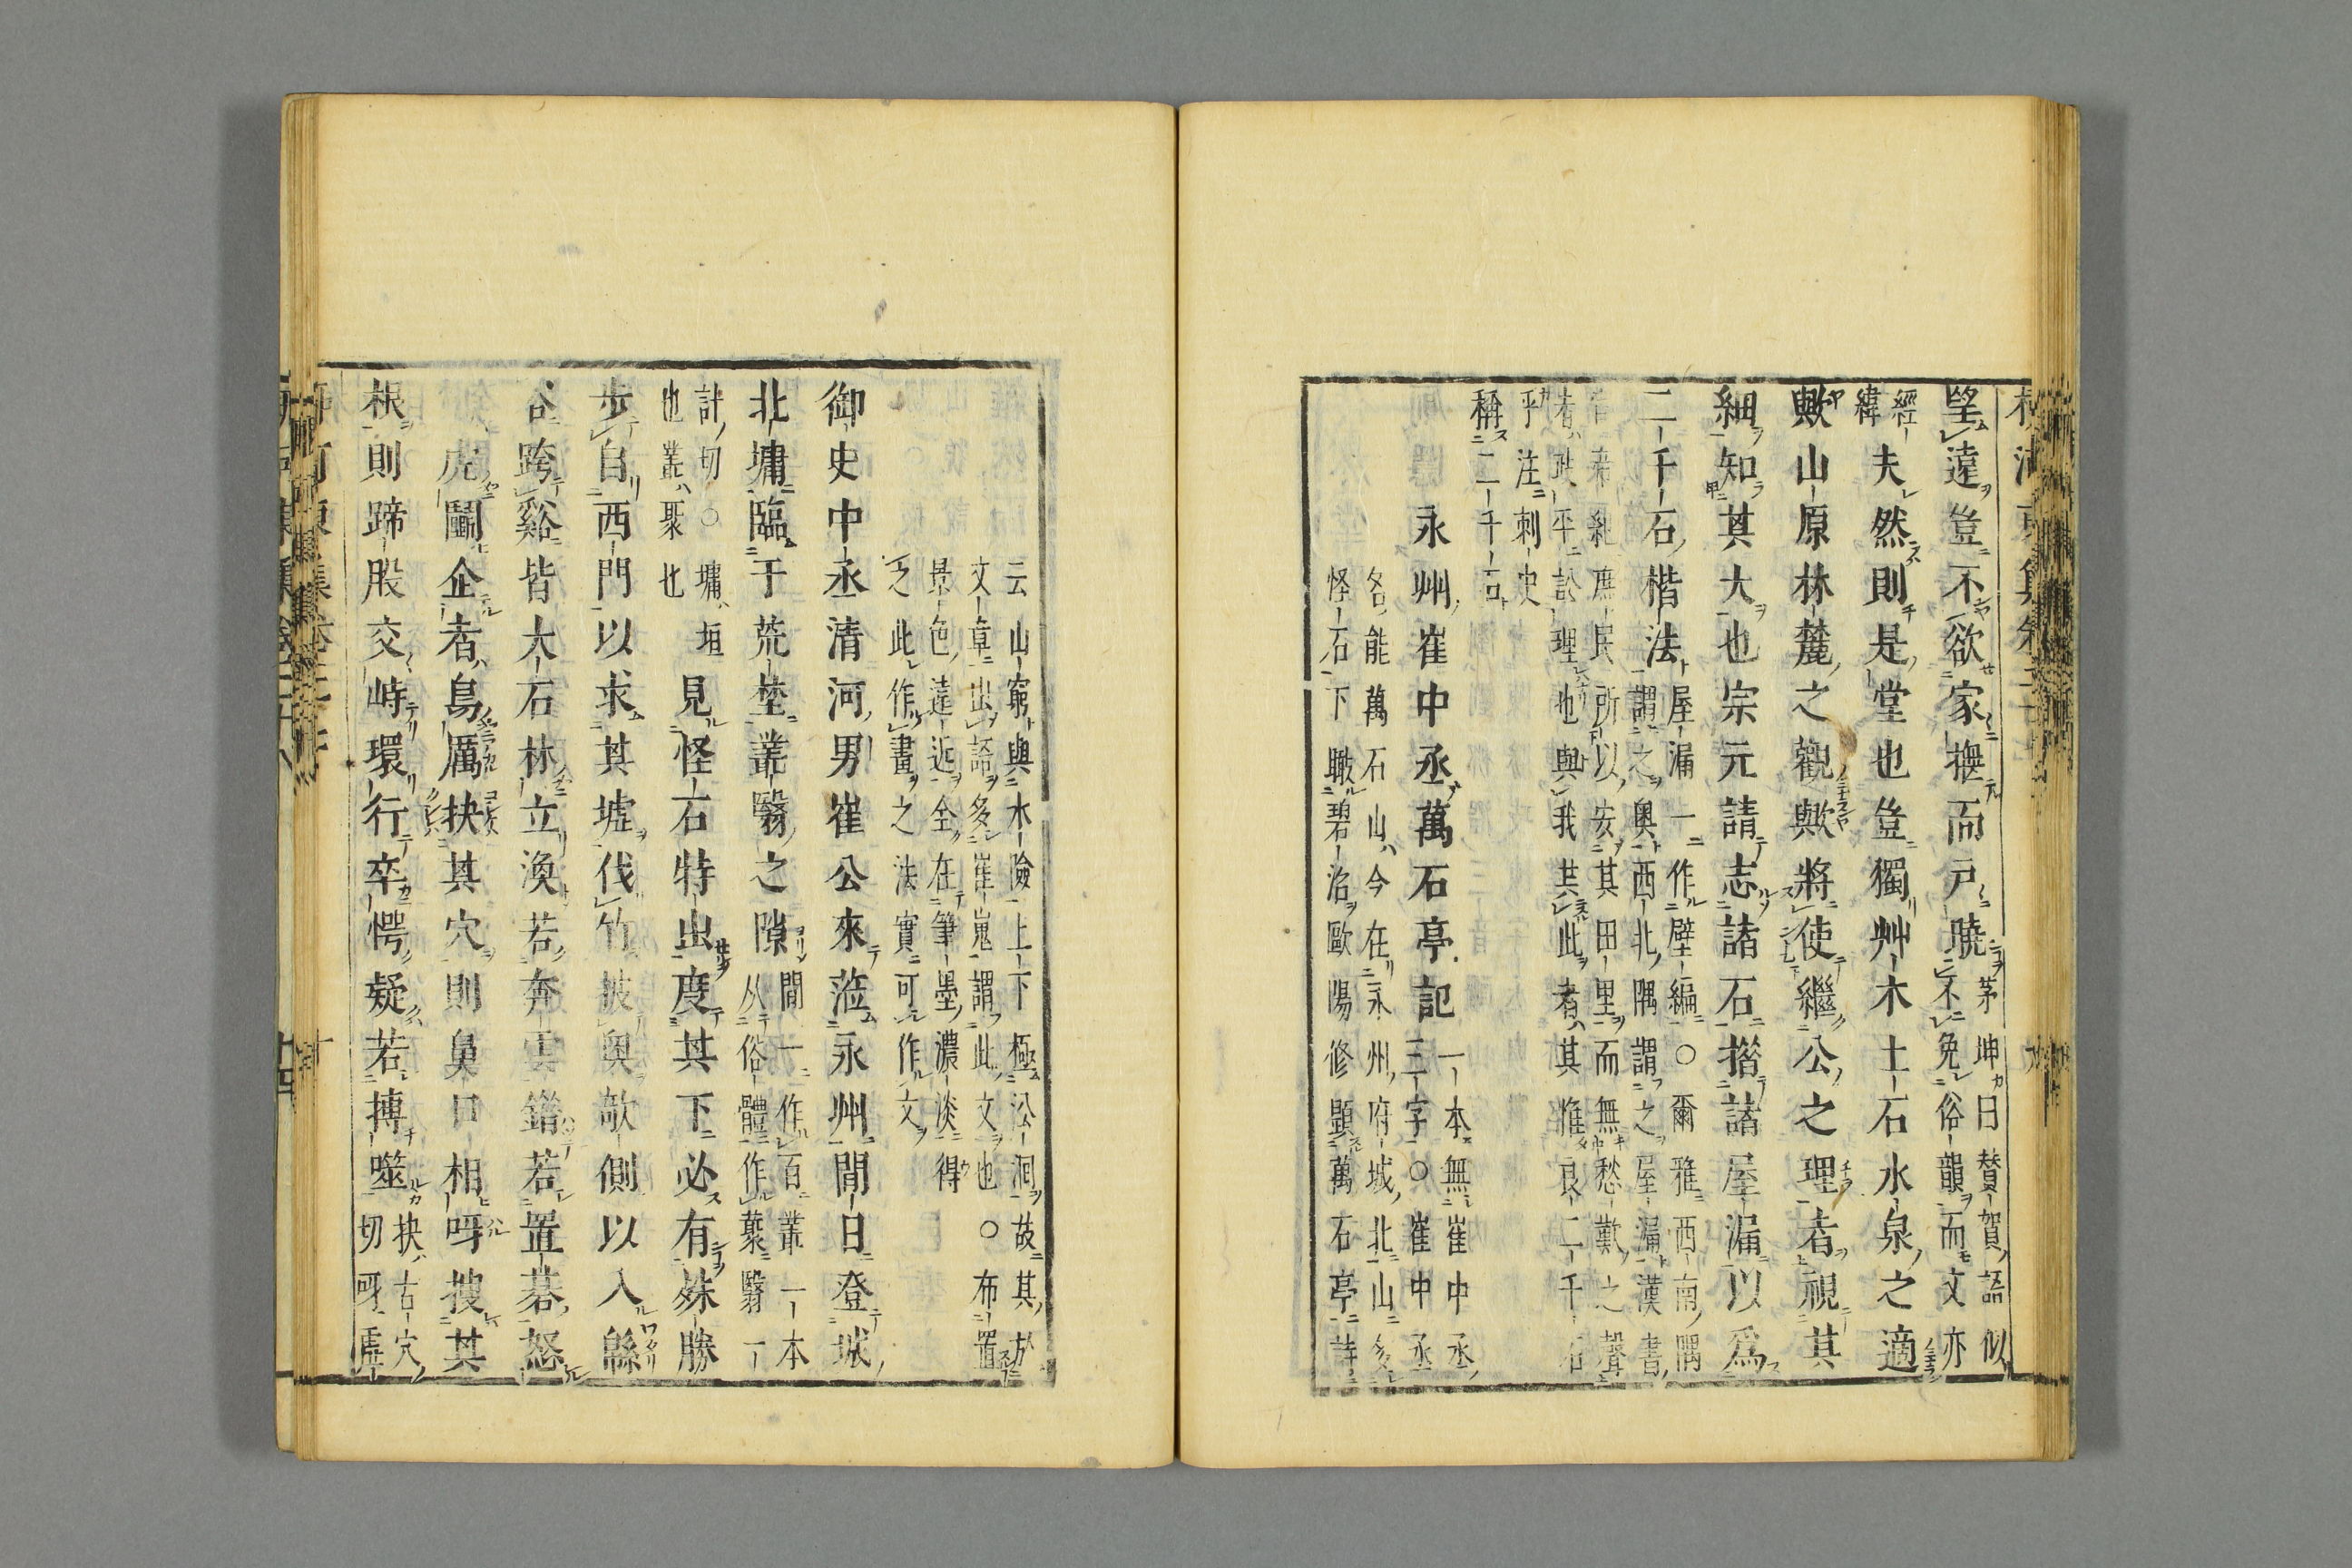 望遠豈不欲家撫而戸曉茅坤曰賛賀語似
不免俗韻而文亦
經
緯夫然則是堂也豈獨艸木土石水泉之適
歟山原林麓之觀歟將使繼公之理者視其
細知其大也宗元請志諸石措諸屋漏以爲
二千石楷法屋漏一作壁編○爾雅西南隅
謂之奧西北隅謂之屋漏漢書
庶民所以安其田里而無愁歎之聲
者政平訟理也與我共此者其惟良二千石
乎注刺史
稱二千石
永州崔中丞萬石亭記一本無崔中丞
三字○崔中丞
名能萬石山今在永州府城北山多
怪石下瞰碧沿歐陽修顯萬石亭詩
云山窮與水險上下極㳂洄故其於
文章出語多崔嵬謂此文也○布置
景色遠近全在筆墨濃淡得
之此作畫之法實可作文
御史中丞清河男崔公來涖永州閒日登城
北墉臨于荒埜叢翳之隙閒一作百叢一本
从俗體作藂翳一
計切○墉垣
也叢聚也見怪石特出度其下必有殊勝
步自西門以求其墟伐竹披奧欹側以入緜
谷跨谿皆大石林立渙若奔雲錯若置碁怒
虎鬭企者鳥厲抉其穴則鼻口相呀搜其
根則蹄股交峙環行卒愕疑若搏噬抉古穴
切呀虛